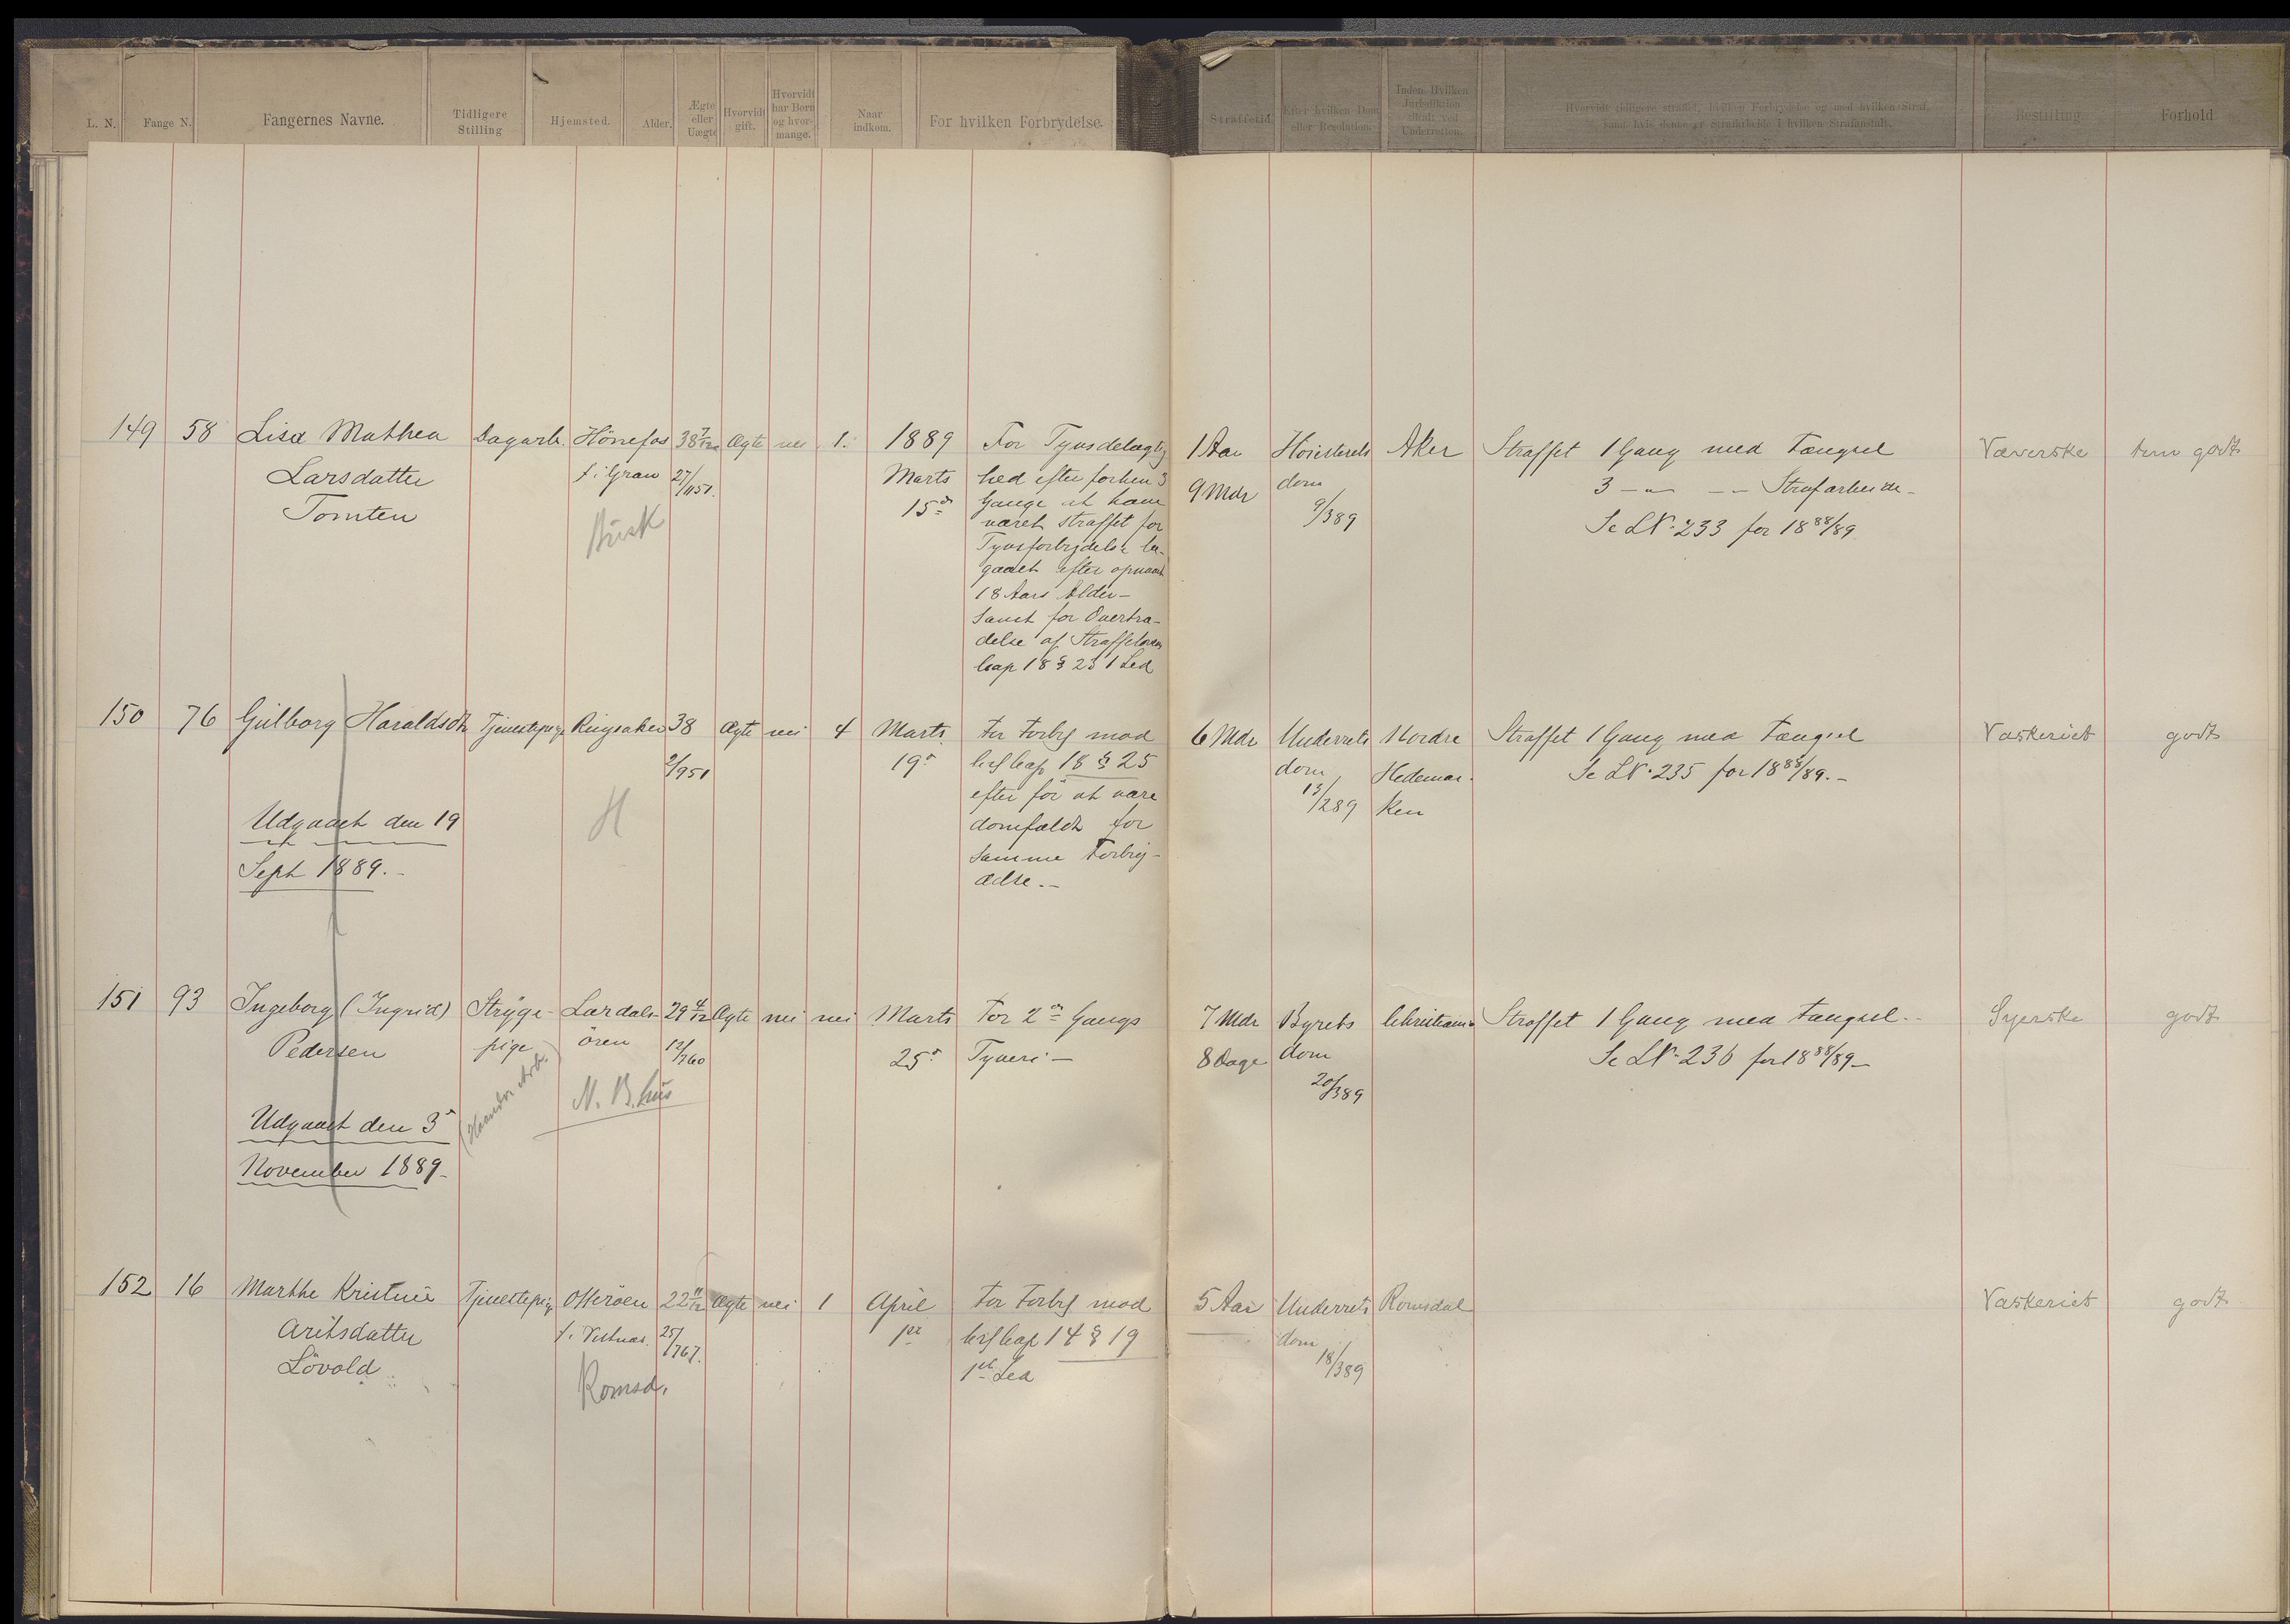 L. N.
Fange N.
Fangernes Navne.
Tidligere
Stilling
Hjemsted.
Alder.
Ægte
eller
Uægte
Hvorvidt
gift.
Hvorvidt
har Børn
og hvor-
mange.
Naar
indkom.
For hvilken Forbrydelse.
Straffetid.
Efter hvilken Dom
eller Resolution.
Inden Hvilken
Jurisdiktion
tiltalt ved
Underretten.
Hvorvidt tidligere straffet, hvilken Forbrydelse og med hvilken Straf,
samt hvis denne er Strafarbeide i hvilken Strafanstalt.
Bestilling
Forhold
149
58
Lisa Mathea
Larsdatter
Tomten
Dagarb.
Hönefos
f. i Gran
Busk
38 7/12
27/1151.
Ægte
nei
1.
1889
Marts
15de
For Tyvsdelagtig
hed efter forhen 3
Gange at have
været straffet for
Tyvsforbrydelse be-
gaaet efter opnaaet
18 Aars Alder –
samt for Overtræ-
delse af Straffeloven
Cap 18 § 25 1 Led
1 Aar
9 Mdr
Høiesterets
dom
9/389
Aker
Straffet 1 Gang med Fængsel
3 – " – – – Strafarbeide –
Se LN. 233 for 1888/89.
Væverske
tem godt
150
76
Gulborg Haraldsdtr
Udgaaet den 19
Sept 1889. –
Tjenestepige
Ringsaker
H
38
2/951
Ægte
nei
4
Marts
19de
For Forbr mod
Crl Cap 18 § 25
efter för at være
domfældt for
samme Forbry-
delse. –
6 Mdr
Underrets
dom
13/289
Nordre
Hedemar-
ken
Straffet 1 Gang med Fængsel
Se LN. 235 for 1888/89. –
Vaskeriet
godt
151
93
Ingeborg (Ingrid)
Pedersen
Udgaaet den 3
November 1889 –
Stryge-
pige
Lærdals-
ören
N. B. hus
29 4/12
12/760
Ægte
nei
nei
Marts
25de
For 2den Gangs
Tyveri –
7 Mdr
8 Dage
Byrets
dom
20/389
Christiania
Straffet 1 Gang med Fængsel. –
Se LN. 236 for 1888/89 –
Syerske
godt
152
16
Marthe Kristine
Aritsdatter
Lövold
Tjenestepige
Otteröen
f. i Vestnæs.
Romsd.
22 11/12
25/767.
Ægte
nei
1
April
1ste
For Forbr mod
Crl Cap 14 § 19
1ste Led
5 Aar
Underrets
dom
18/389
Romsdal
Vaskeriet
godt